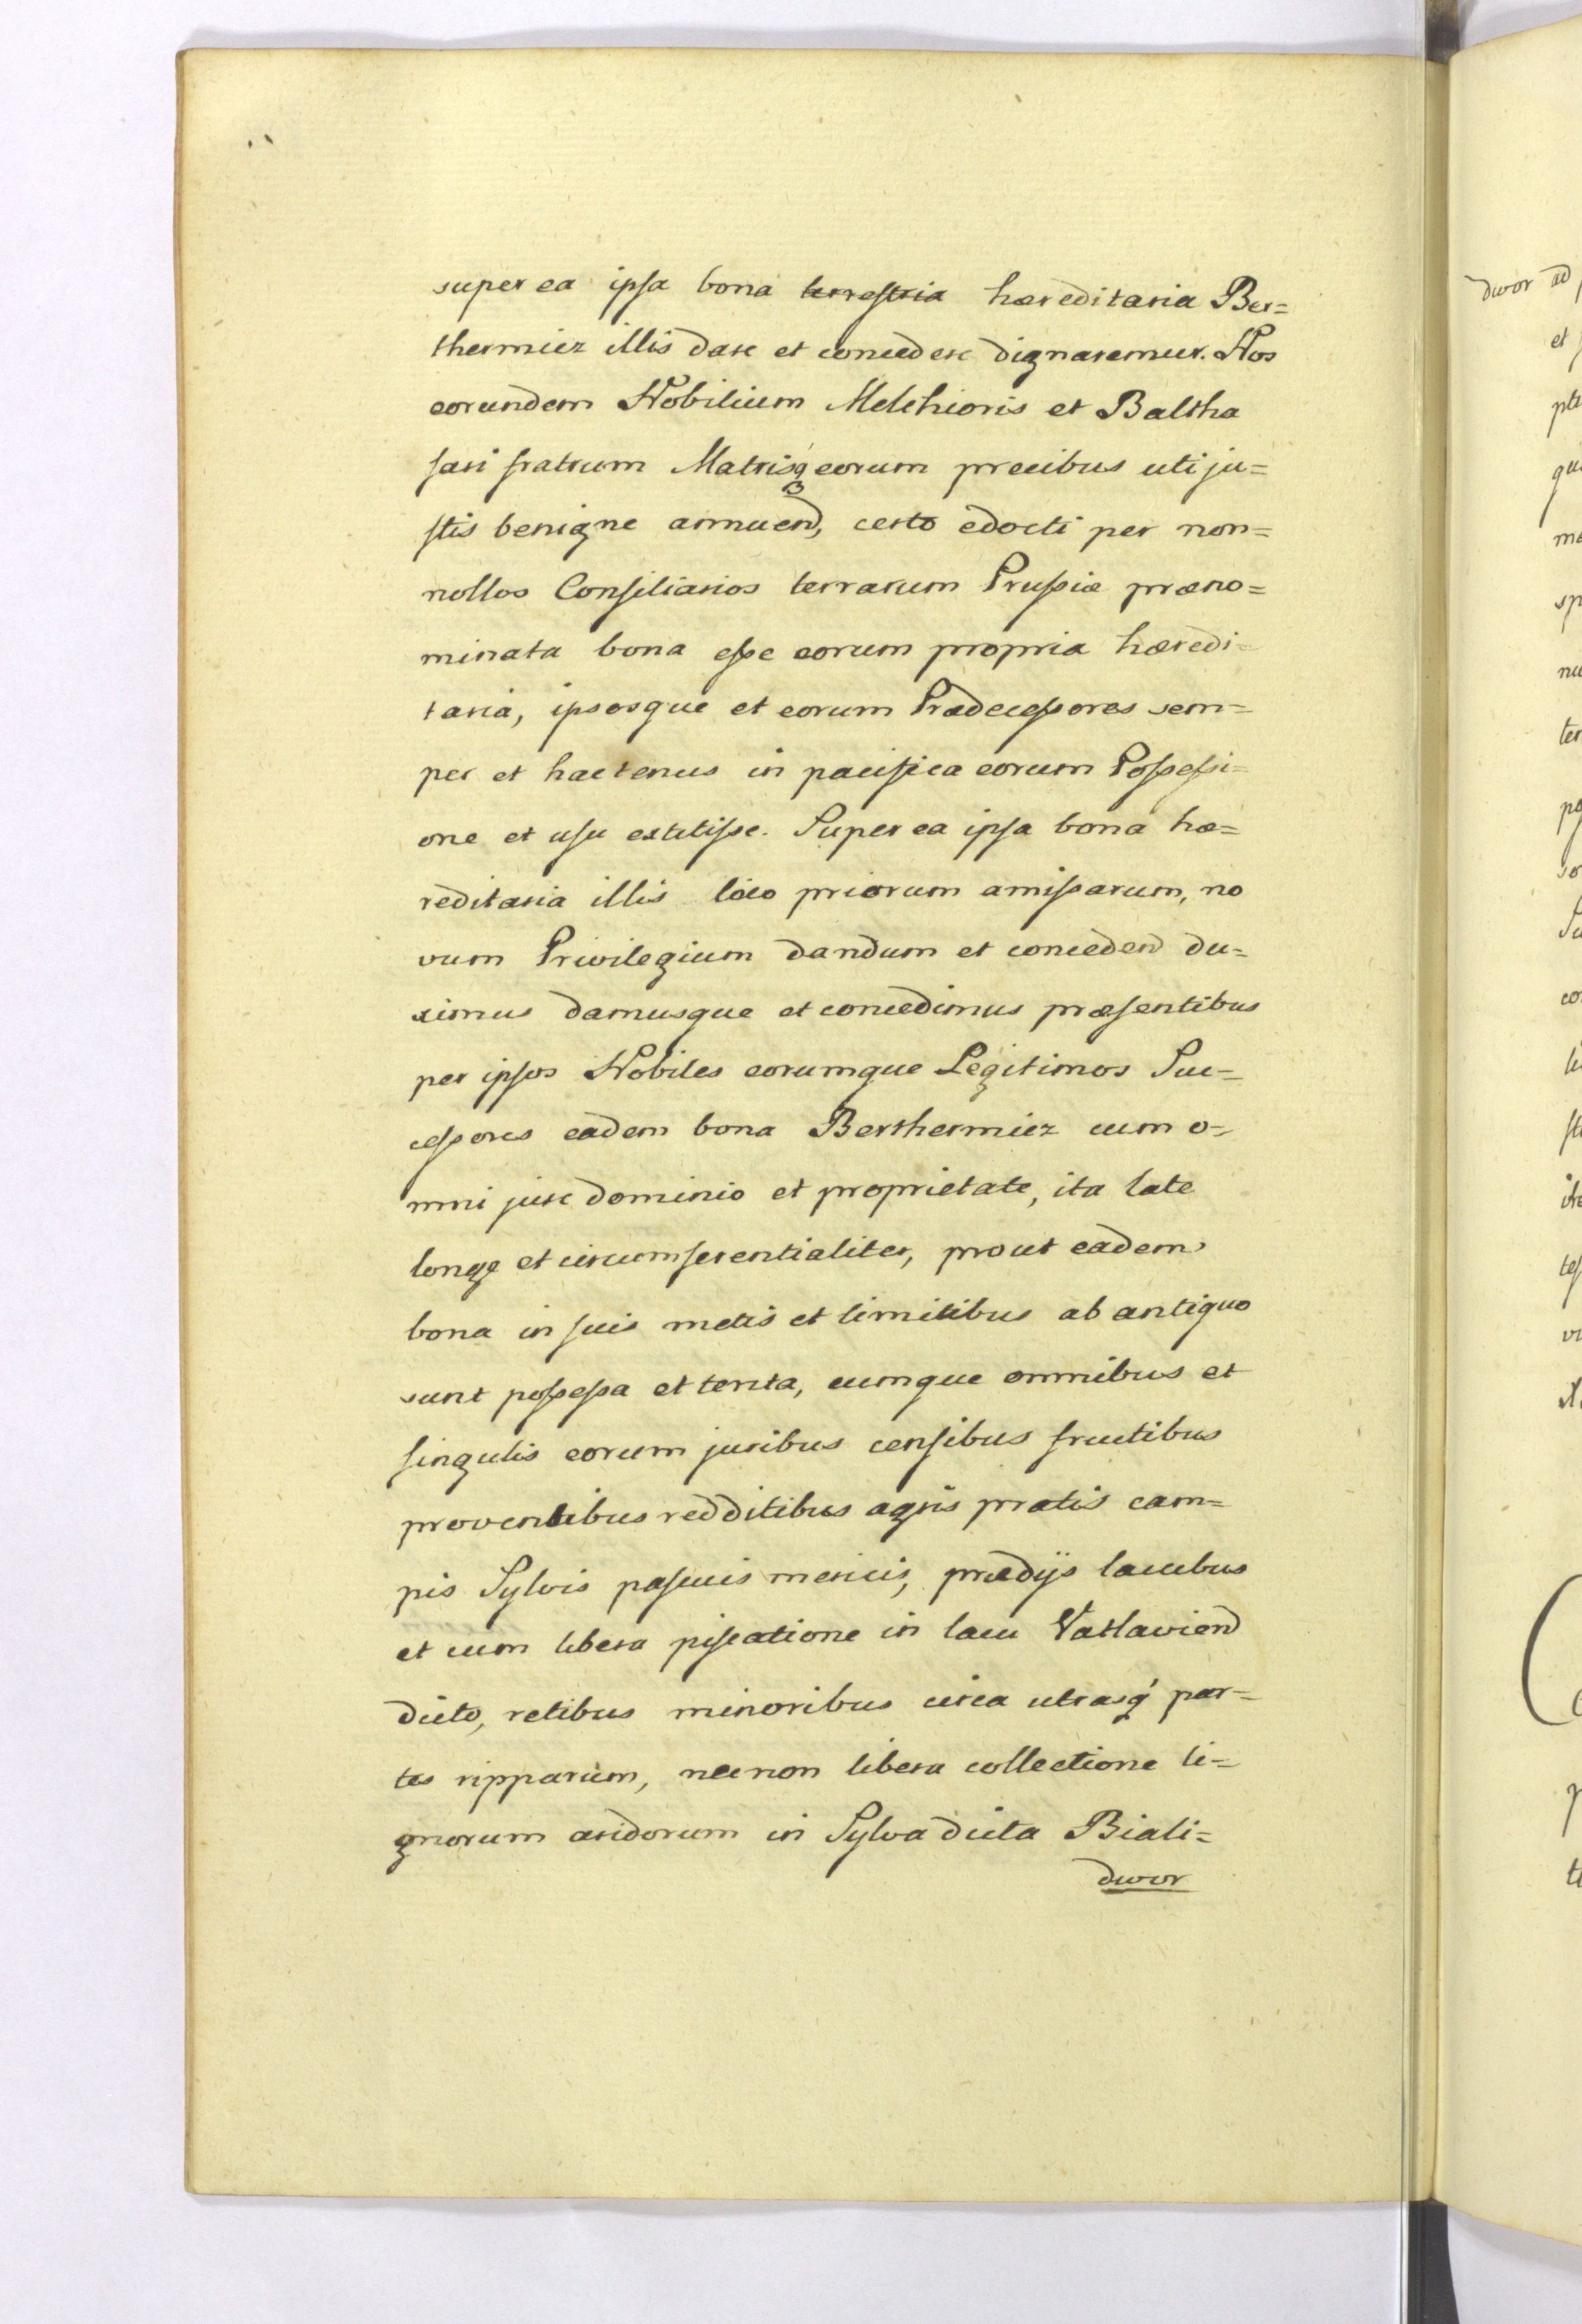 super ea ipsa bona terrestria hæreditaria Ber=
thermiez illis dare et concedere dignaremur. Nos
eorundem Nobilium Melchioris et Baltha
sari fratrum Matrisq́ eorum precibus uti ju=
stis benigne annuend, certo edocti per non=
nollos Consiliarios terrarum Prussiæ præno=
minata bona esse eorum propria hæredi=
taria, ipsosque et eorum Prædecessores sem=
per et hactenus in pacifica eorum Possessi=
one et usu extitisse. Super ea ipsa bona hæ=
reditaria illis loco priorum amissarum, no
vum Privilegium dandum et conceden̄d du=
ximus damusque et concedimus præsentibus
per ipsos Nobiles eorumque Legitimos Suc=
cessores eadem bona Berthermiez cum o=
mni jure dominio et proprietate, ita late
longe et circumferentialiter, prout eadem
bona in suis metis et limitibus ab antiquo
sunt possessa et tenta, cumque omnibus et
singulis eorum juribus censibus fructibus
proventibus redditibus agris pratis cam=
pis Sylvis pascuis mericis, prædijs lacubus
et cum libera piscatione in lacu Vatlawiend
dicto, retibus minoribus circa utrasq́ par=
tes ripparum, necnon libera collectione li=
gnorum aridorum in Sylva dicta Biali=
dwor
dwor ad
et